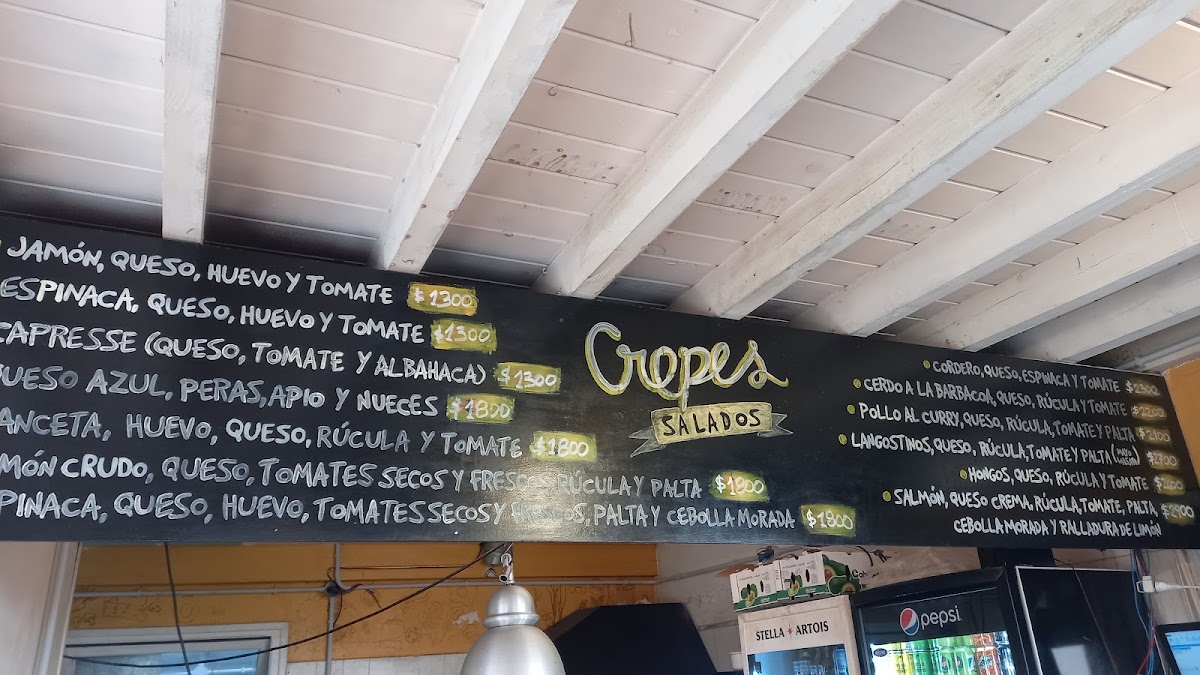 JAMÓN, QUESO, HUEVO Y TOMATE $1300
ESPINACA, QUESO, HUEVO Y TOMATE $1300
CAPRESSE (QUESO, TOMATE Y ALBAHACA) $1300
QUESO AZUL, PERAS, APIO Y NUECES $1800
ANCETA, HUEVO, QUESO, RÚCULA Y TOMATE $1800
MÓN CRUDO, QUESO, TOMATES SECOS Y FRESCOS, RÚCULA Y PALTA $1900
PINACA, QUESO, HUEVO, TOMATES SECOS Y FRESCOS, PALTA Y CEBOLLA MORADA $1900
Crepes
SALADOS
CORDERO, QUESO, ESPINACA Y TOMATE $2300
CERDO A LA BARBACOA, QUESO, RÚCULA Y TOMATE $2200
POLLO AL CURRY, QUESO, RÚCULA, TOMATE Y PALTA $2100
LANGOSTINOS, QUESO, RÚCULA, TOMATE Y PALTA
HONGOS, QUESO, RÚCULA Y TOMATE
SALMÓN, QUESO CREMA, RÚCULA, TOMATE, PALTA, $2900
CEBOLLA MORADA Y RALLADURA DE LIMÓN
STELLA ARTOIS
pepsi